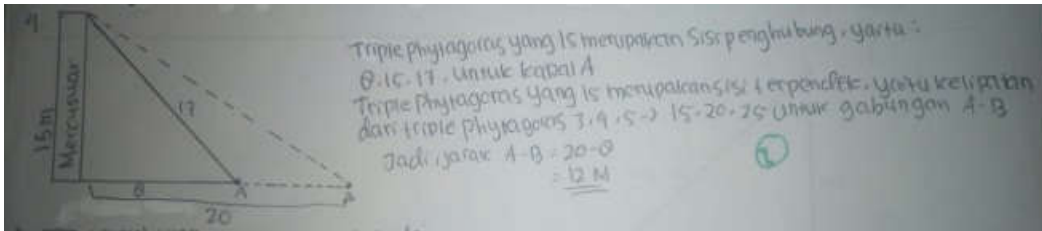 Triple phytagoras yang 15 merupakan sisi penghubung, yaitu :
8.15.17. untuk kapal A
Triple Phytagoras yang 15 merupakan sisi terpendek, yaitu kelipatan
dari triple phytagoras 3.4.5 → 15.20.25 untuk gabungan A-B
Jadi, jarak A-B = 20-8
= 12 M
15m
Mercusuar
17
8
A
20